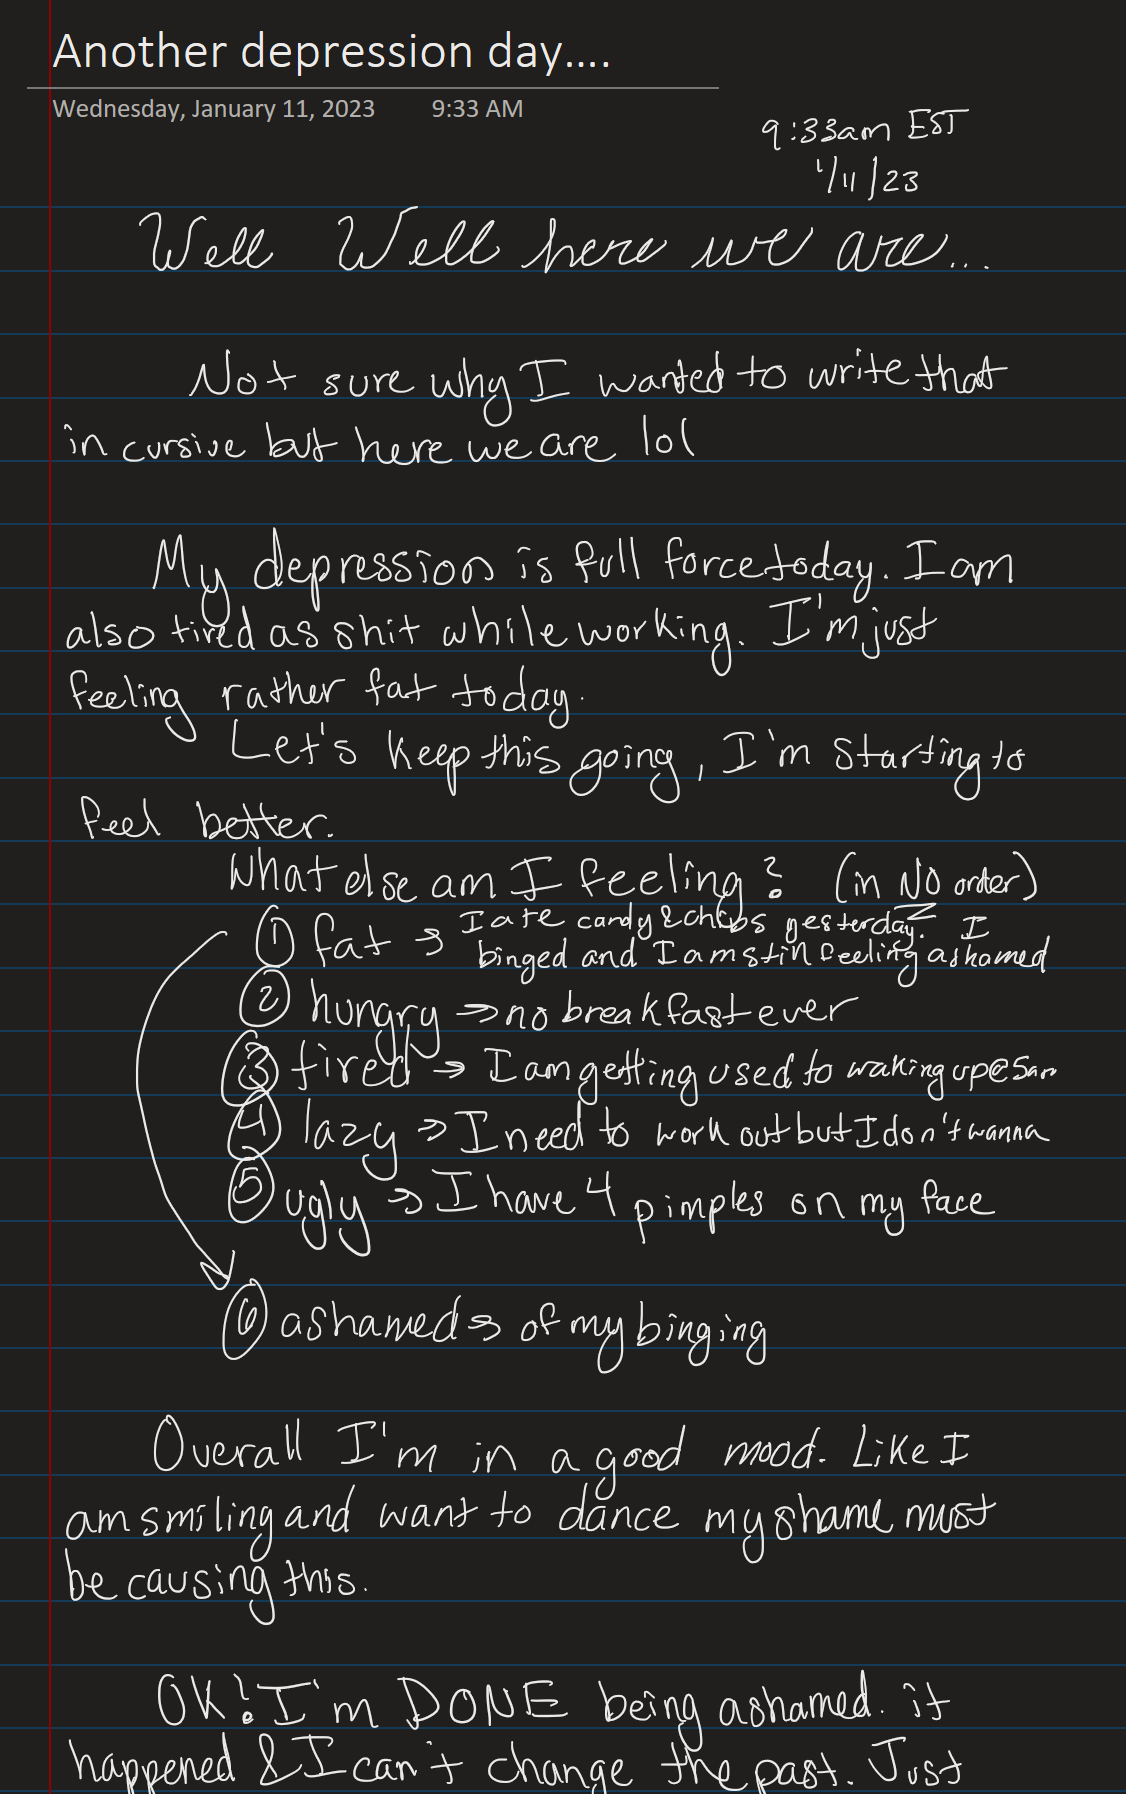 Another depression day....
Wednesday, January 11, 2023 9:33 AM
9:33am EST
1/11/23
Well Well here we are...
Not sure why I wanted to write that
in cursive but here we are lol
My depression is full force today. I am
also tired as shit while working. I'm just
feeling rather fat today.
Let's keep this going, I'm starting to
feel better.
What else am I feeling? (in NO order)
① fat → I ate candy & chips yesterday. I
binged and I am still feeling ashamed
② hungry → no breakfast ever
③ tired → I am getting used to waking up @ 5am
④ lazy → I need to work out but I don't wanna
⑤ ugly → I have 4 pimples on my face
⑥ ashamed → of my binging
Overall I'm in a good mood. Like I
am smiling and want to dance my shame must
be causing this.
OK! I'm DONE being ashamed. it
happened & I can't change the past. Just